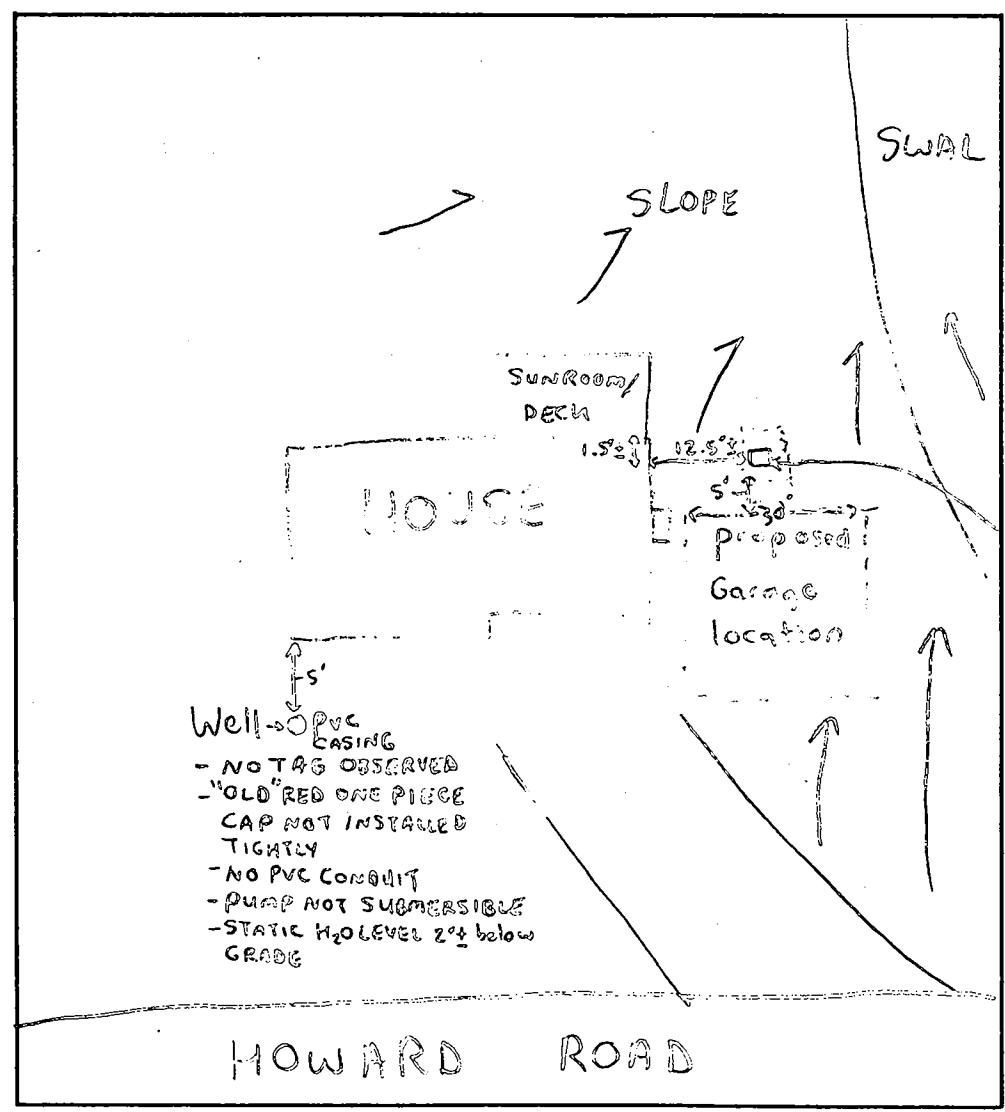 SWAL
SLOPE
SUNROOM/
DECK
1.5'±
12.5'±
HOUSE
5'
30'
Proposed
Garage
location
5'
Well→ PVC
CASING
- NO TAG OBSERVED
- "OLD" RED ONE PIECE
CAP NOT INSTALLED
TIGHTLY
- NO PVC CONDUIT
- PUMP NOT SUBMERSIBLE
- STATIC H₂O LEVEL 2'± below
GRADE
HOWARD ROAD